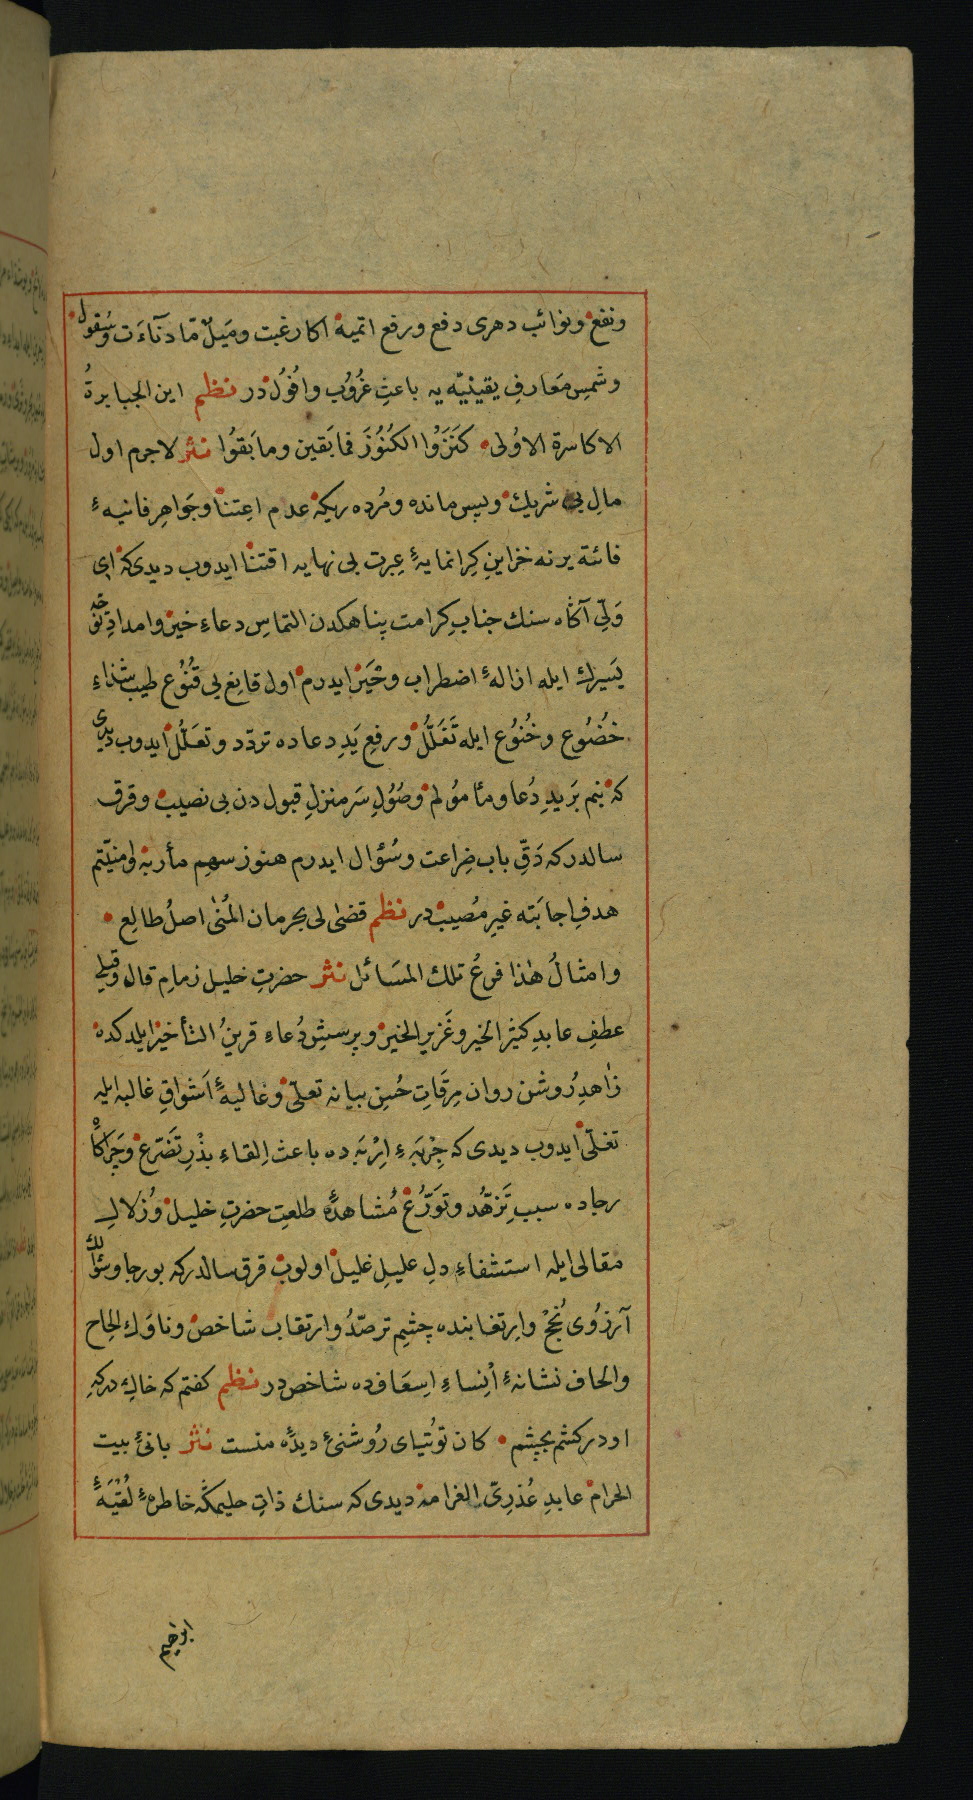 ونفع ونوائب دهری دفع ورفع اتمیه اکا رغبت ومَیل مّا دنآءَت وسُفول
وشمسِ مَعارفِ یقینیّه یه باعثِ غُرُوب واُفُولْ در نظم این الجبابرةُ
الاکاسرة الاُولی کَنَزُوْا الکُنُوْزَ فمابَقین ومابَقُوا نثر لاجرم اول
مالِ بی شریك وپس مانده ومُرده ریکه عدم اعتنا وجَواهرِ فانیهٔ
فائته یرنه خزاینِ کرانمایهٔ عِبرت بی نهایه اقتنا ایدوب دیدی که ای
وَلیّ آکاه سنك جنابِ کرامت پناهکدن التماسِ دعاءِ خیر وامدادِ
یَسیرك ایله ازالهٔ اضطراب وحَیْز ایدرم اول قانعِ بی قُنُوع طیب شذاءِ
خُضُوع وخُنُوع ایله تَغَلُّلْ ورفعِ یَدِ دعاده تردّد وتعلُّل ایدوب دیدی
که بنم بَریدِ دُعا ومأمُولم وصُوُلِ سَرمنزلِ قبول دن بی نصیب وقرق
سالدرکه دَقِّ باب ضِراعت وسُؤال ایدرم هنوز سهمِ مأربه وامنیّتم
هدفِ اجابَته غیرِ مُصیب در نظم قضٰی لی بحرمان المُنٰی اصلُ طالِعِ
وامثالُ هٰذا فرعُ تلك المسَائل نثر حضرتِ خلیل زمامِ قال وقیلی
عطفِ عابدِ کثیر الخیر وغَزیر الخیر وپرسشِ دُعاءِ قرینُ التأخیر ایلدکده
زٰاهدِ رُوشن روان مِرقَاتِ حُسنِ بیانه تعلّی وغالیهٔ اَشواقِ غالبه ایله
تغلّی ایدوب دیدی که جِرْبَهٔ اِرْبَه ده باعث اِلقاءِ بذْرِ تَضَرّع وچَراکاه
رجاده سببِ تَزهُّد وتوَرُّع مُشاهدهٔ طلعتِ حضرتِ خلیل وزُلالِ
مقالی ایله استشفاءِ دلِ علیلِ غلیل اولوب قرق سالدرکه بورجا وسؤالك
آرزوی نُجحْ وارتغابنده چشمِ ترصّدُ وارتقاب شاخصْ وناوَك الحاح
والحاف نشانهٔ اَنْساءِ اسعافده شاخص در نظم کفتم که خاكِ درکهِ
اودر کشم بچشم کان توُتیای رُوشنئ دیدهٔ منست نثر بانئ بیت
الحرام عابدِ عُذریّ الغرامه دیدی که سنك ذاتِ حلیمکه خاطرهٔ لُقْیَهٔ
ابرهیم